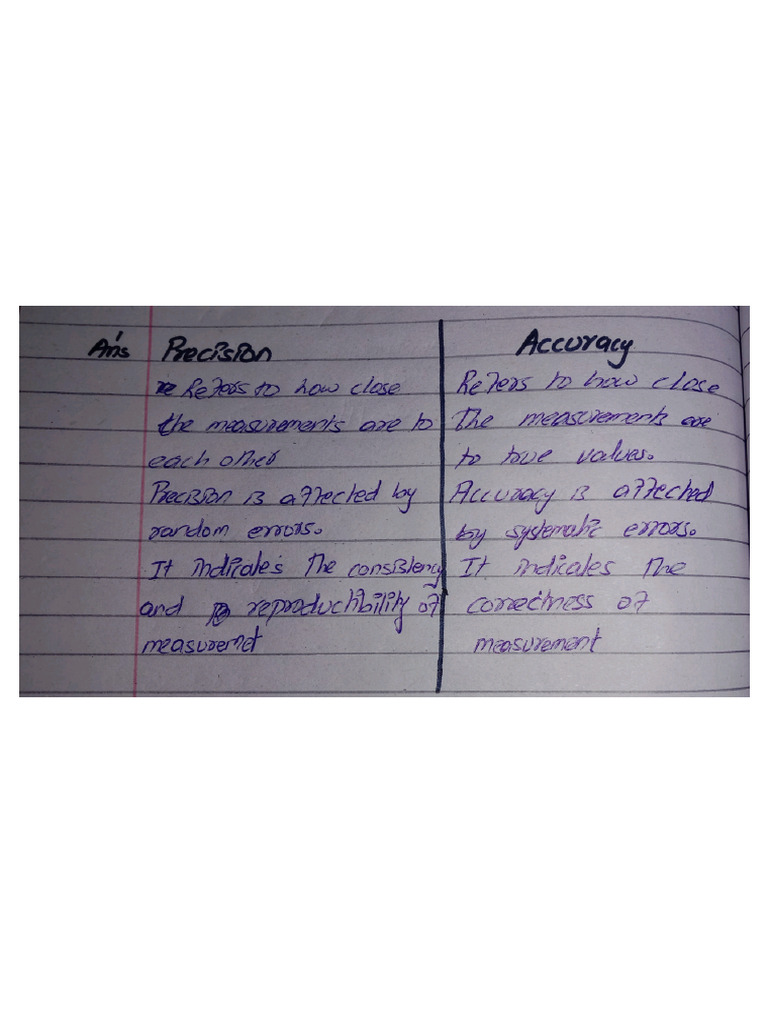 Ans Precision
re Refers to how close
the measurements are to
each other
Precision is affected by
random errors.
It indicates the consistency
and reproductibility of
measuremet
Accuracy
Refers to how close
The measurements are
to true values.
Accuracy is affected
by systematic errors.
It indicates the
correctness of
measurement